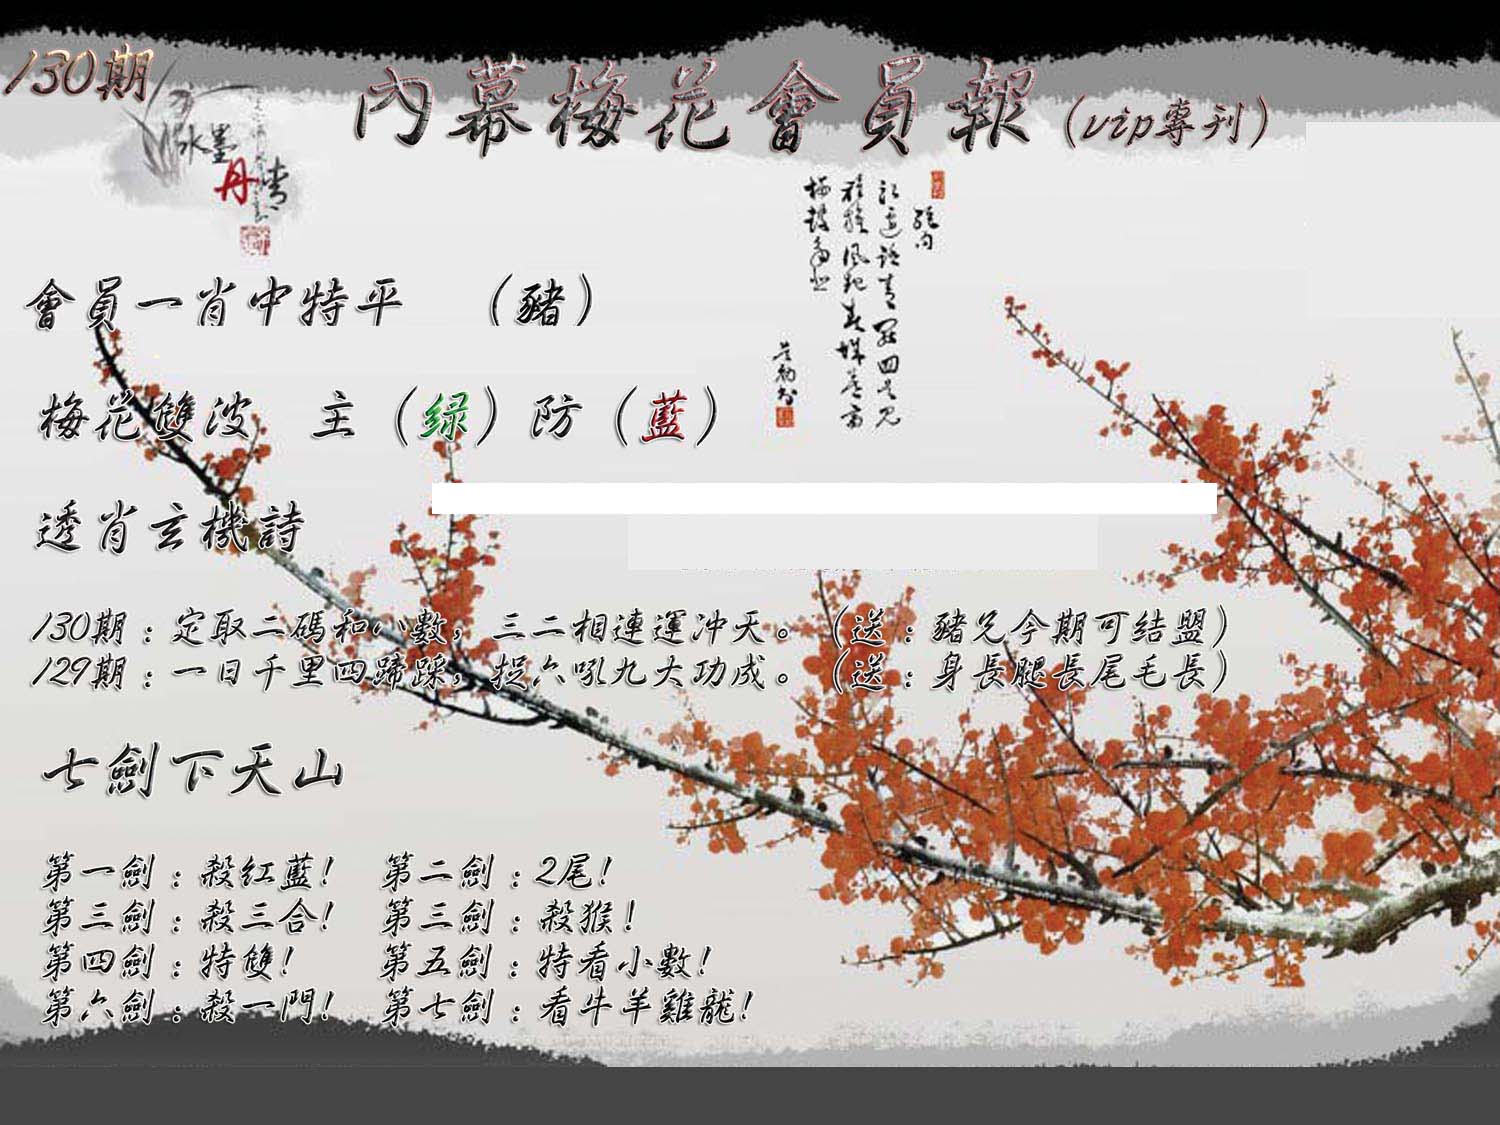 130期
內幕梅花會員報（vip專刊）
水墨丹青
會員一肖中特平　（豬）
梅花雙波　主（绿）防（藍）
透肖玄機詩
130期：定取二碼和八數，三二相連運冲天。（送：豬兄今期可结盟）
129期：一日千里四蹄踩，捉六吼九大功成。（送：身長腿長尾毛長）
七劍下天山
第一劍：殺紅藍！　第二劍：2尾！
第三劍：殺三合！　第三劍：殺猴！
第四劍：特雙！　第五劍：特看小數！
第六劍：殺一門！　第七劍：看牛羊雞龍！